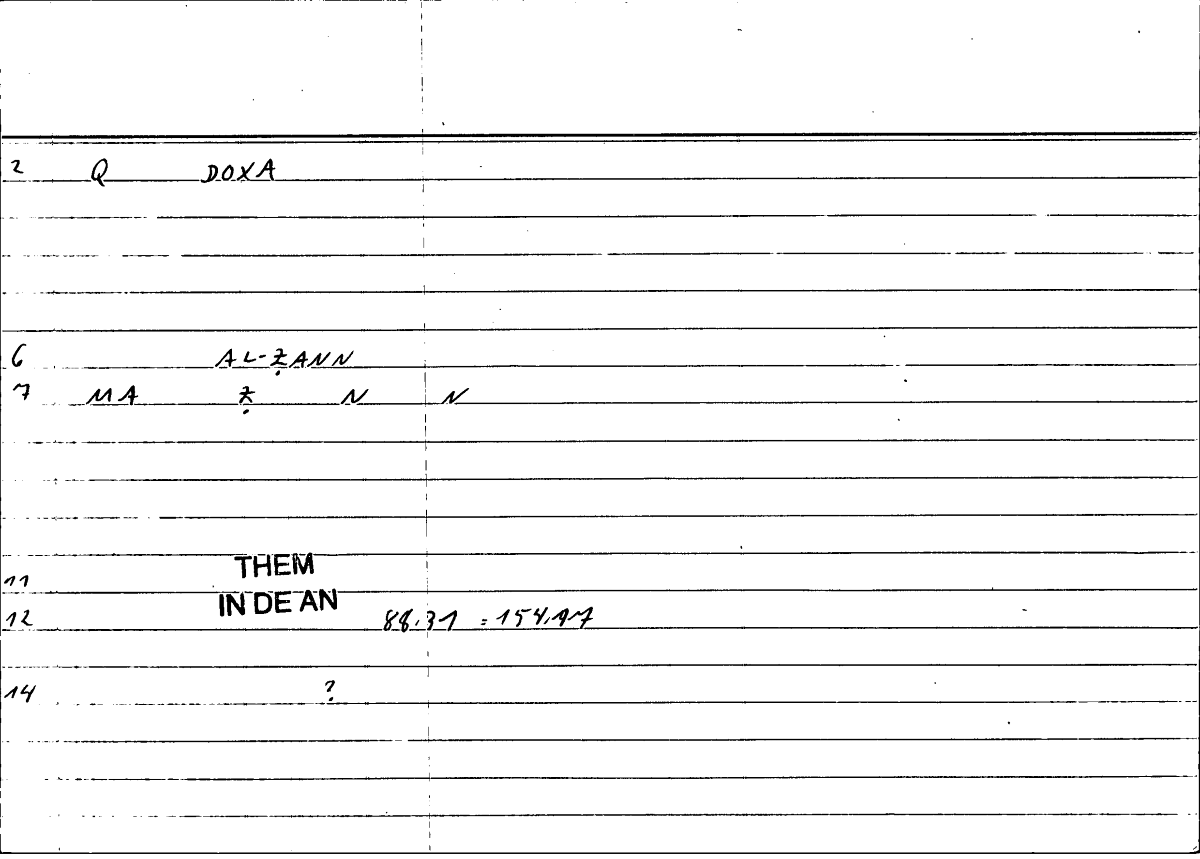 2 Q DOXA
6 AL-ẒANN
7 MA Ẓ N N
11 THEM
IN DE AN
12 88.31 = 154.17
14 ?